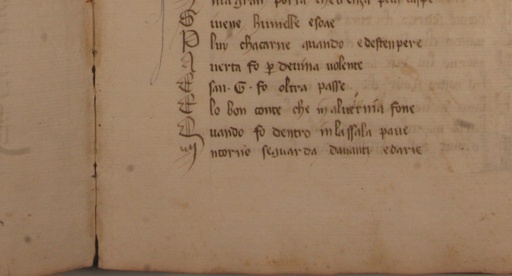 gran porta che
S uiene humelle e soae
P lur chacarne quando e destenpere
A uerta fo ꝑ deuina uolente
E san · G · fo oltra passe
E lo bon conte che in aluernia fone
Q uando fo dentro in la ssala paue
I ntorno seguarda dauanti e darie